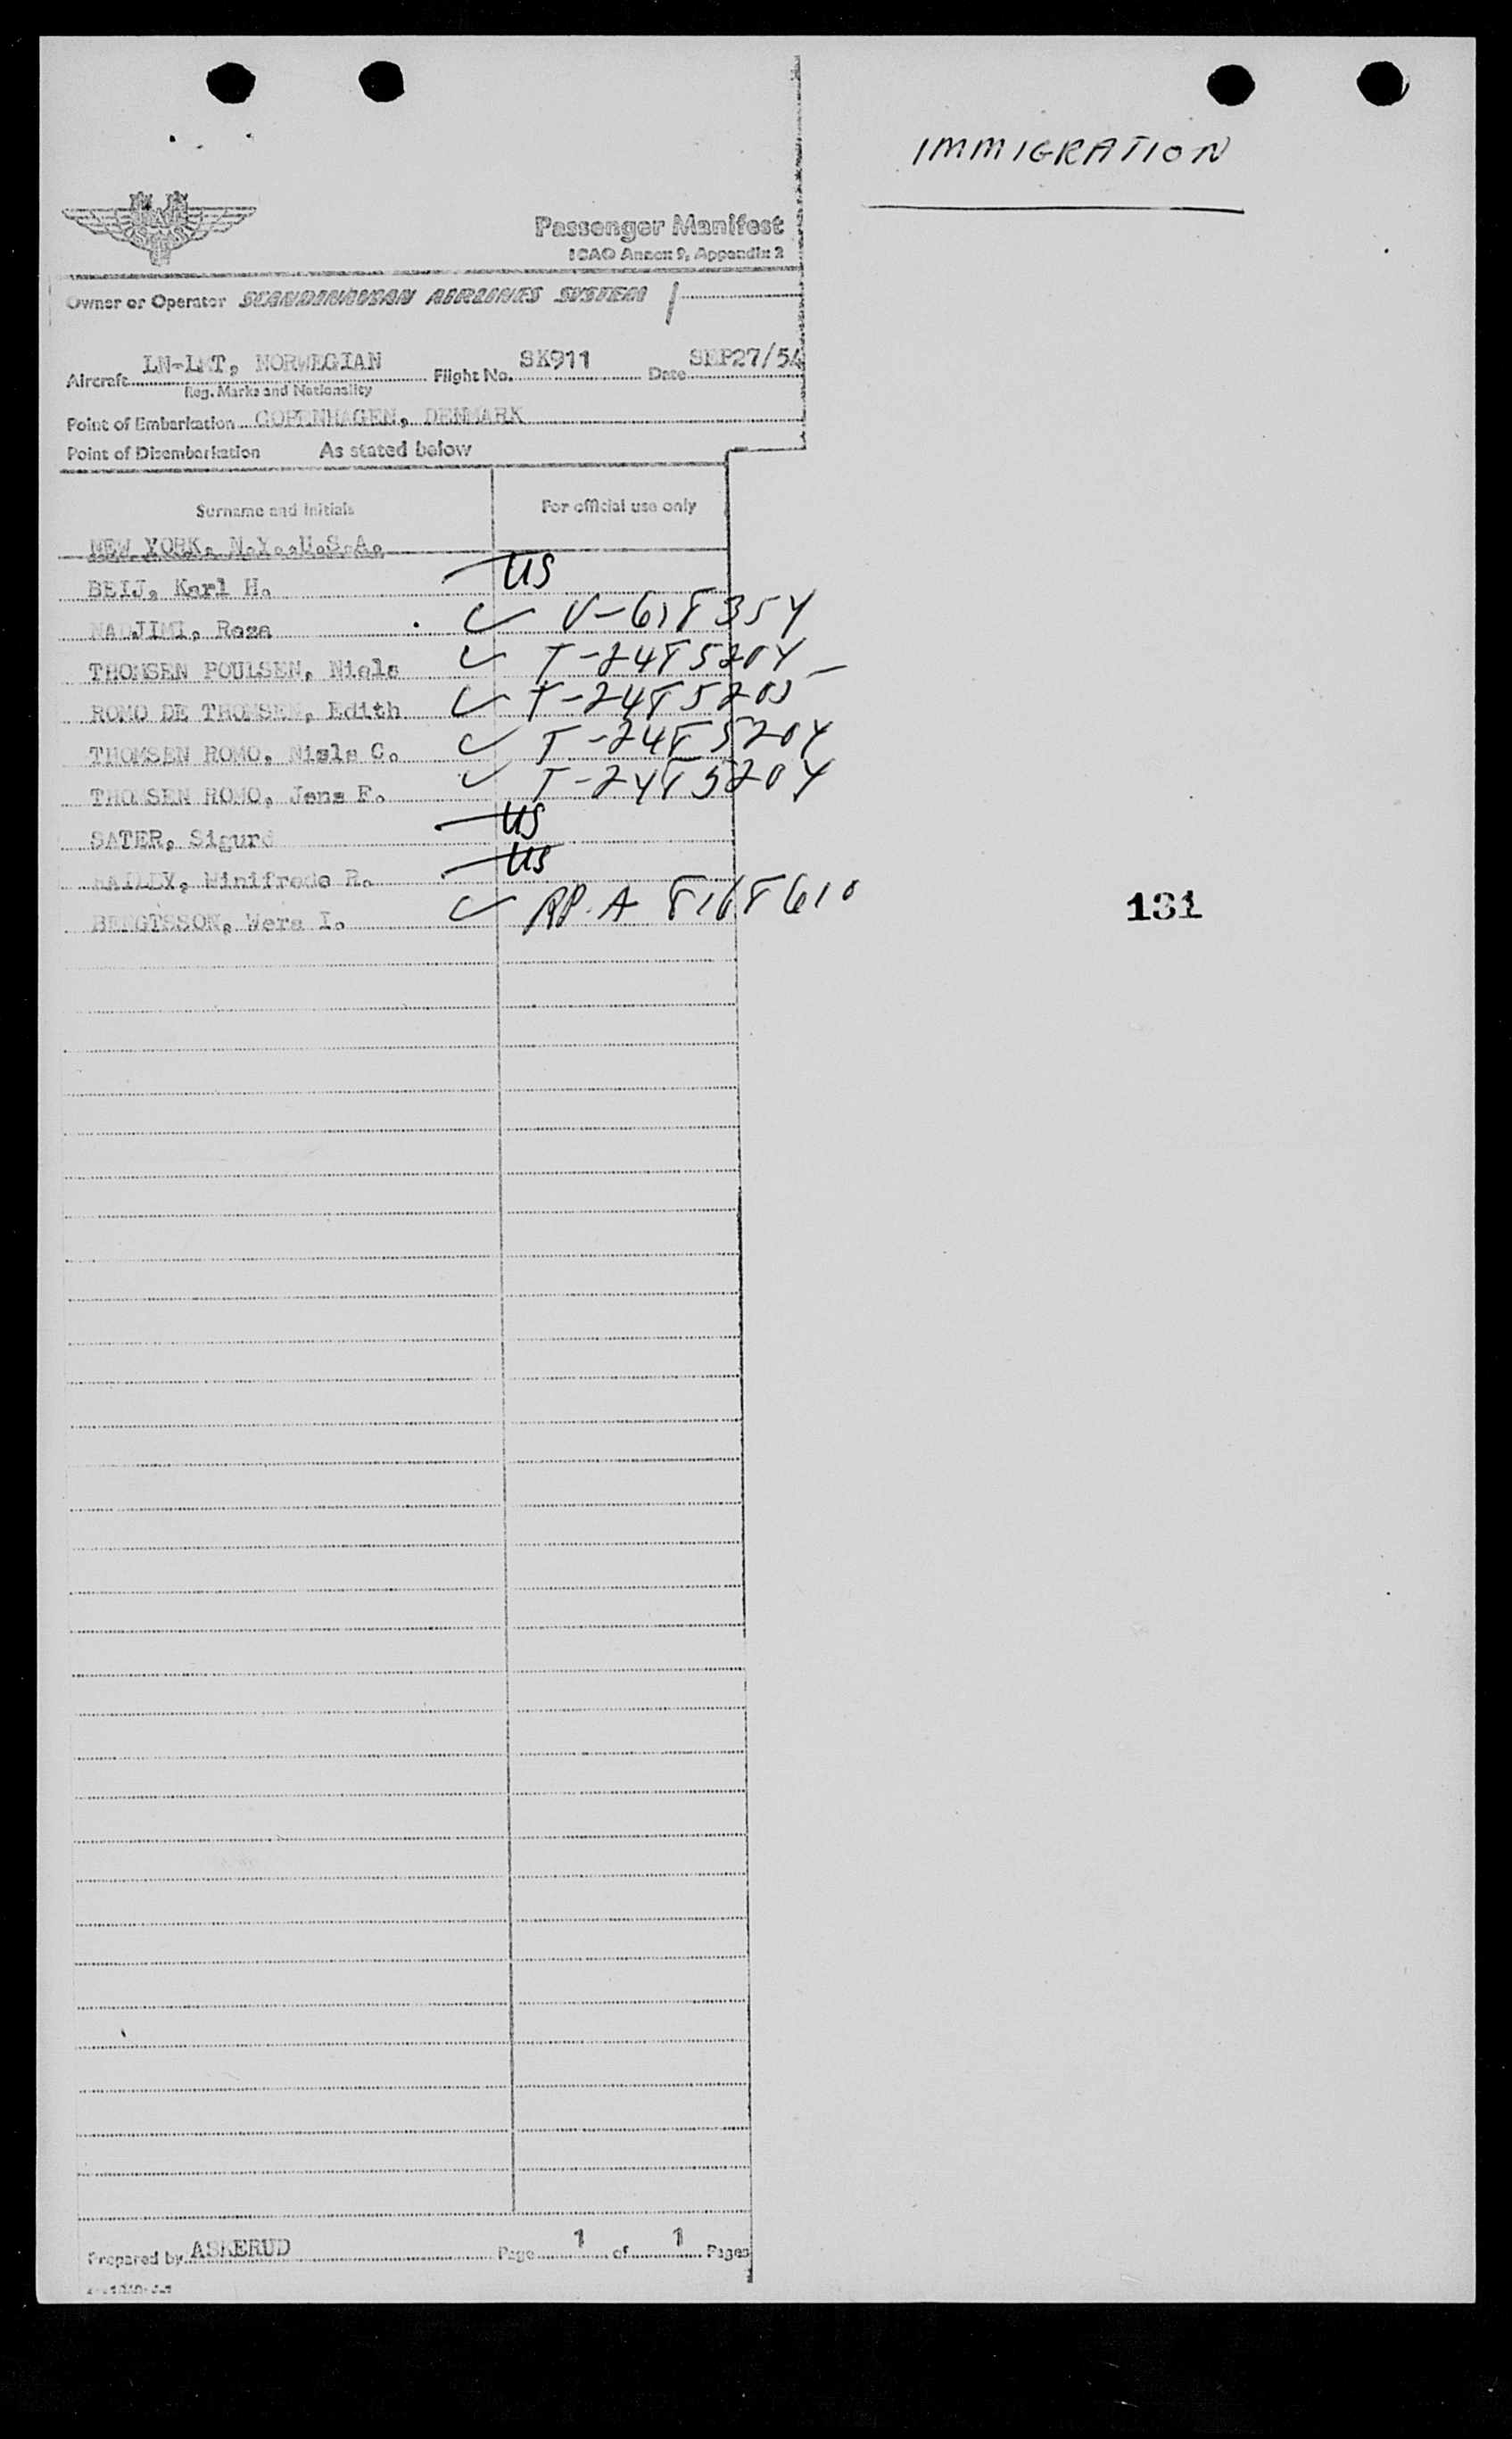 IMMIGRATION
Passenger Manifest
ICAO Annex 9, Appendix 2
Owner or Operator SCANDINAVIAN AIRLINES SYSTEM
Aircraft LN-LMT, NORWEGIAN Flight No. SK911 Date SEP27/54
Reg. Marks and Nationality
Point of Embarkation COPENHAGEN, DENMARK
Point of Disembarkation As stated below
Surname and Initials For official use only
NEW YORK, N.Y., U.S.A.
BEIJ, Karl H. US
NADJIMI, Reza V-618354
THOMSEN POULSEN, Niels T-2485204
ROMO DE THOMSEN, Edith T-2485203
THOMSEN ROMO, Niels C. T-2485204
THOMSEN ROMO, Jens F. T-2485204
SATER, Sigurd US
Winifrede R. US
BENGTSSON, Wera I. RP. A 8168610
131
Prepared by ASKERUD Page 1 of 1 Pages